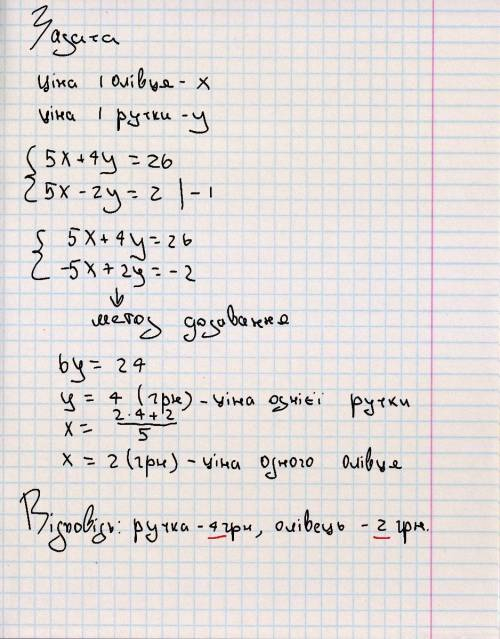 Задача
ціна 1 олівця - x
ціна 1 ручки - y
5x + 4y = 26
5x - 2y = 2 | - 1
5x + 4y = 26
-5x + 2y = - 2
↓
метод додавання
6y = 24
y = 4 (грн) - ціна однієї ручки
x = 2·4+2/5
x = 2 (грн) - ціна одного олівця
Відповідь: ручка - 4 грн, олівець - 2 грн.